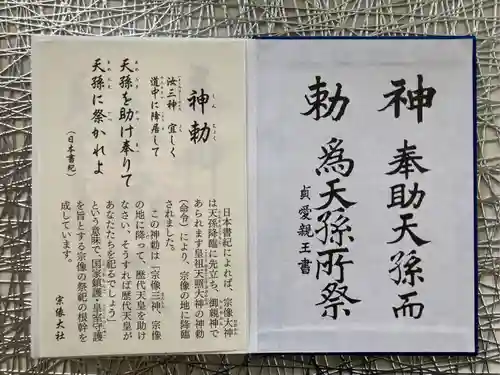 神 奉助天孫而
勅 為天孫所祭
貞愛親王書
神勅
しんちょく
汝三神 宜しく
道中に降居して
天孫を助け奉りて
天孫に祭かれよ
(日本書紀)
日本書紀によれば、宗像大神
は天孫降臨に先立ち、御親神で
あられます皇祖天照大神の神勅
(命令)により、宗像の地に降臨
されました。
この神勅は「宗像三神、宗像
の地に降って、歴代天皇を助け
なさい、そうすれば歴代天皇が
あなたたちを祀るでしょう」
という意味で「国家鎮護・皇室守護」
を旨とする宗像の祭祀の根幹を
成しています。
宗像大社